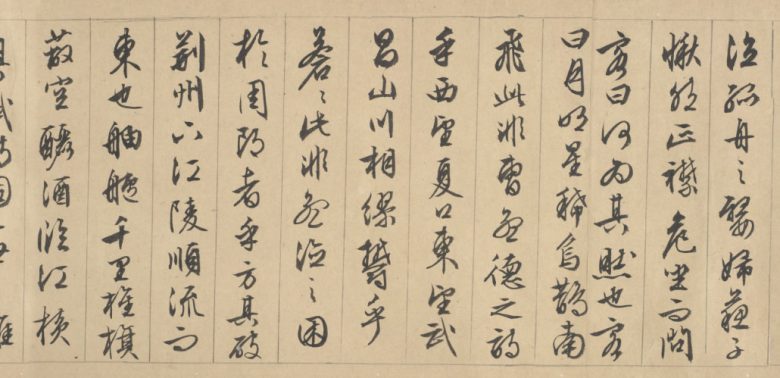 泣孤舟之嫠婦蘇子
愀然正襟危坐而問
客曰何為其然也客
曰月明星稀烏鵲南
飛此非曹孟德之詩
乎西望夏口東望武
昌山川相繆鬱乎
蒼〻此非孟德之困
於周郎者乎方其破
荊州下江陵順流而
東也舳艫千里旌旗
蔽空釃酒臨江橫